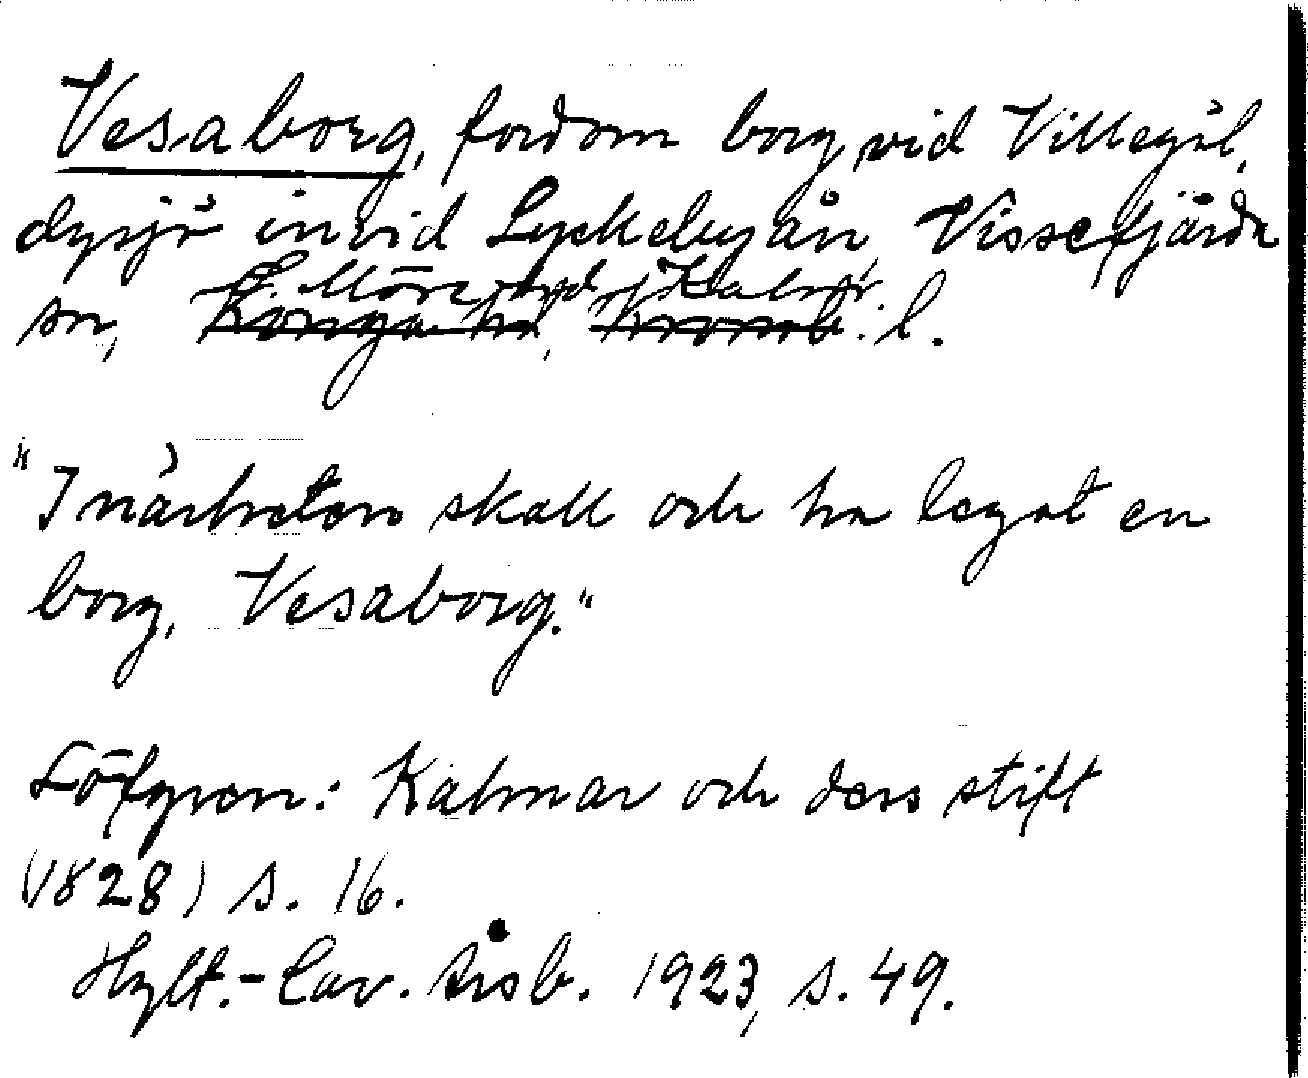 Vesaborg, fordom borg vid Villegöl,
dysjö invid Lyckebyån, Vissefjärda
S. Möre hd, Kalmar
sn, Konga hd, Kronob. l.
"I närheten skall och ha legat en
borg, Vesaborg."
Löfgren: Kalmar och dess stift
(1828) s. 16.
Hylt.-Cav. Årsb. 1923, s. 49.